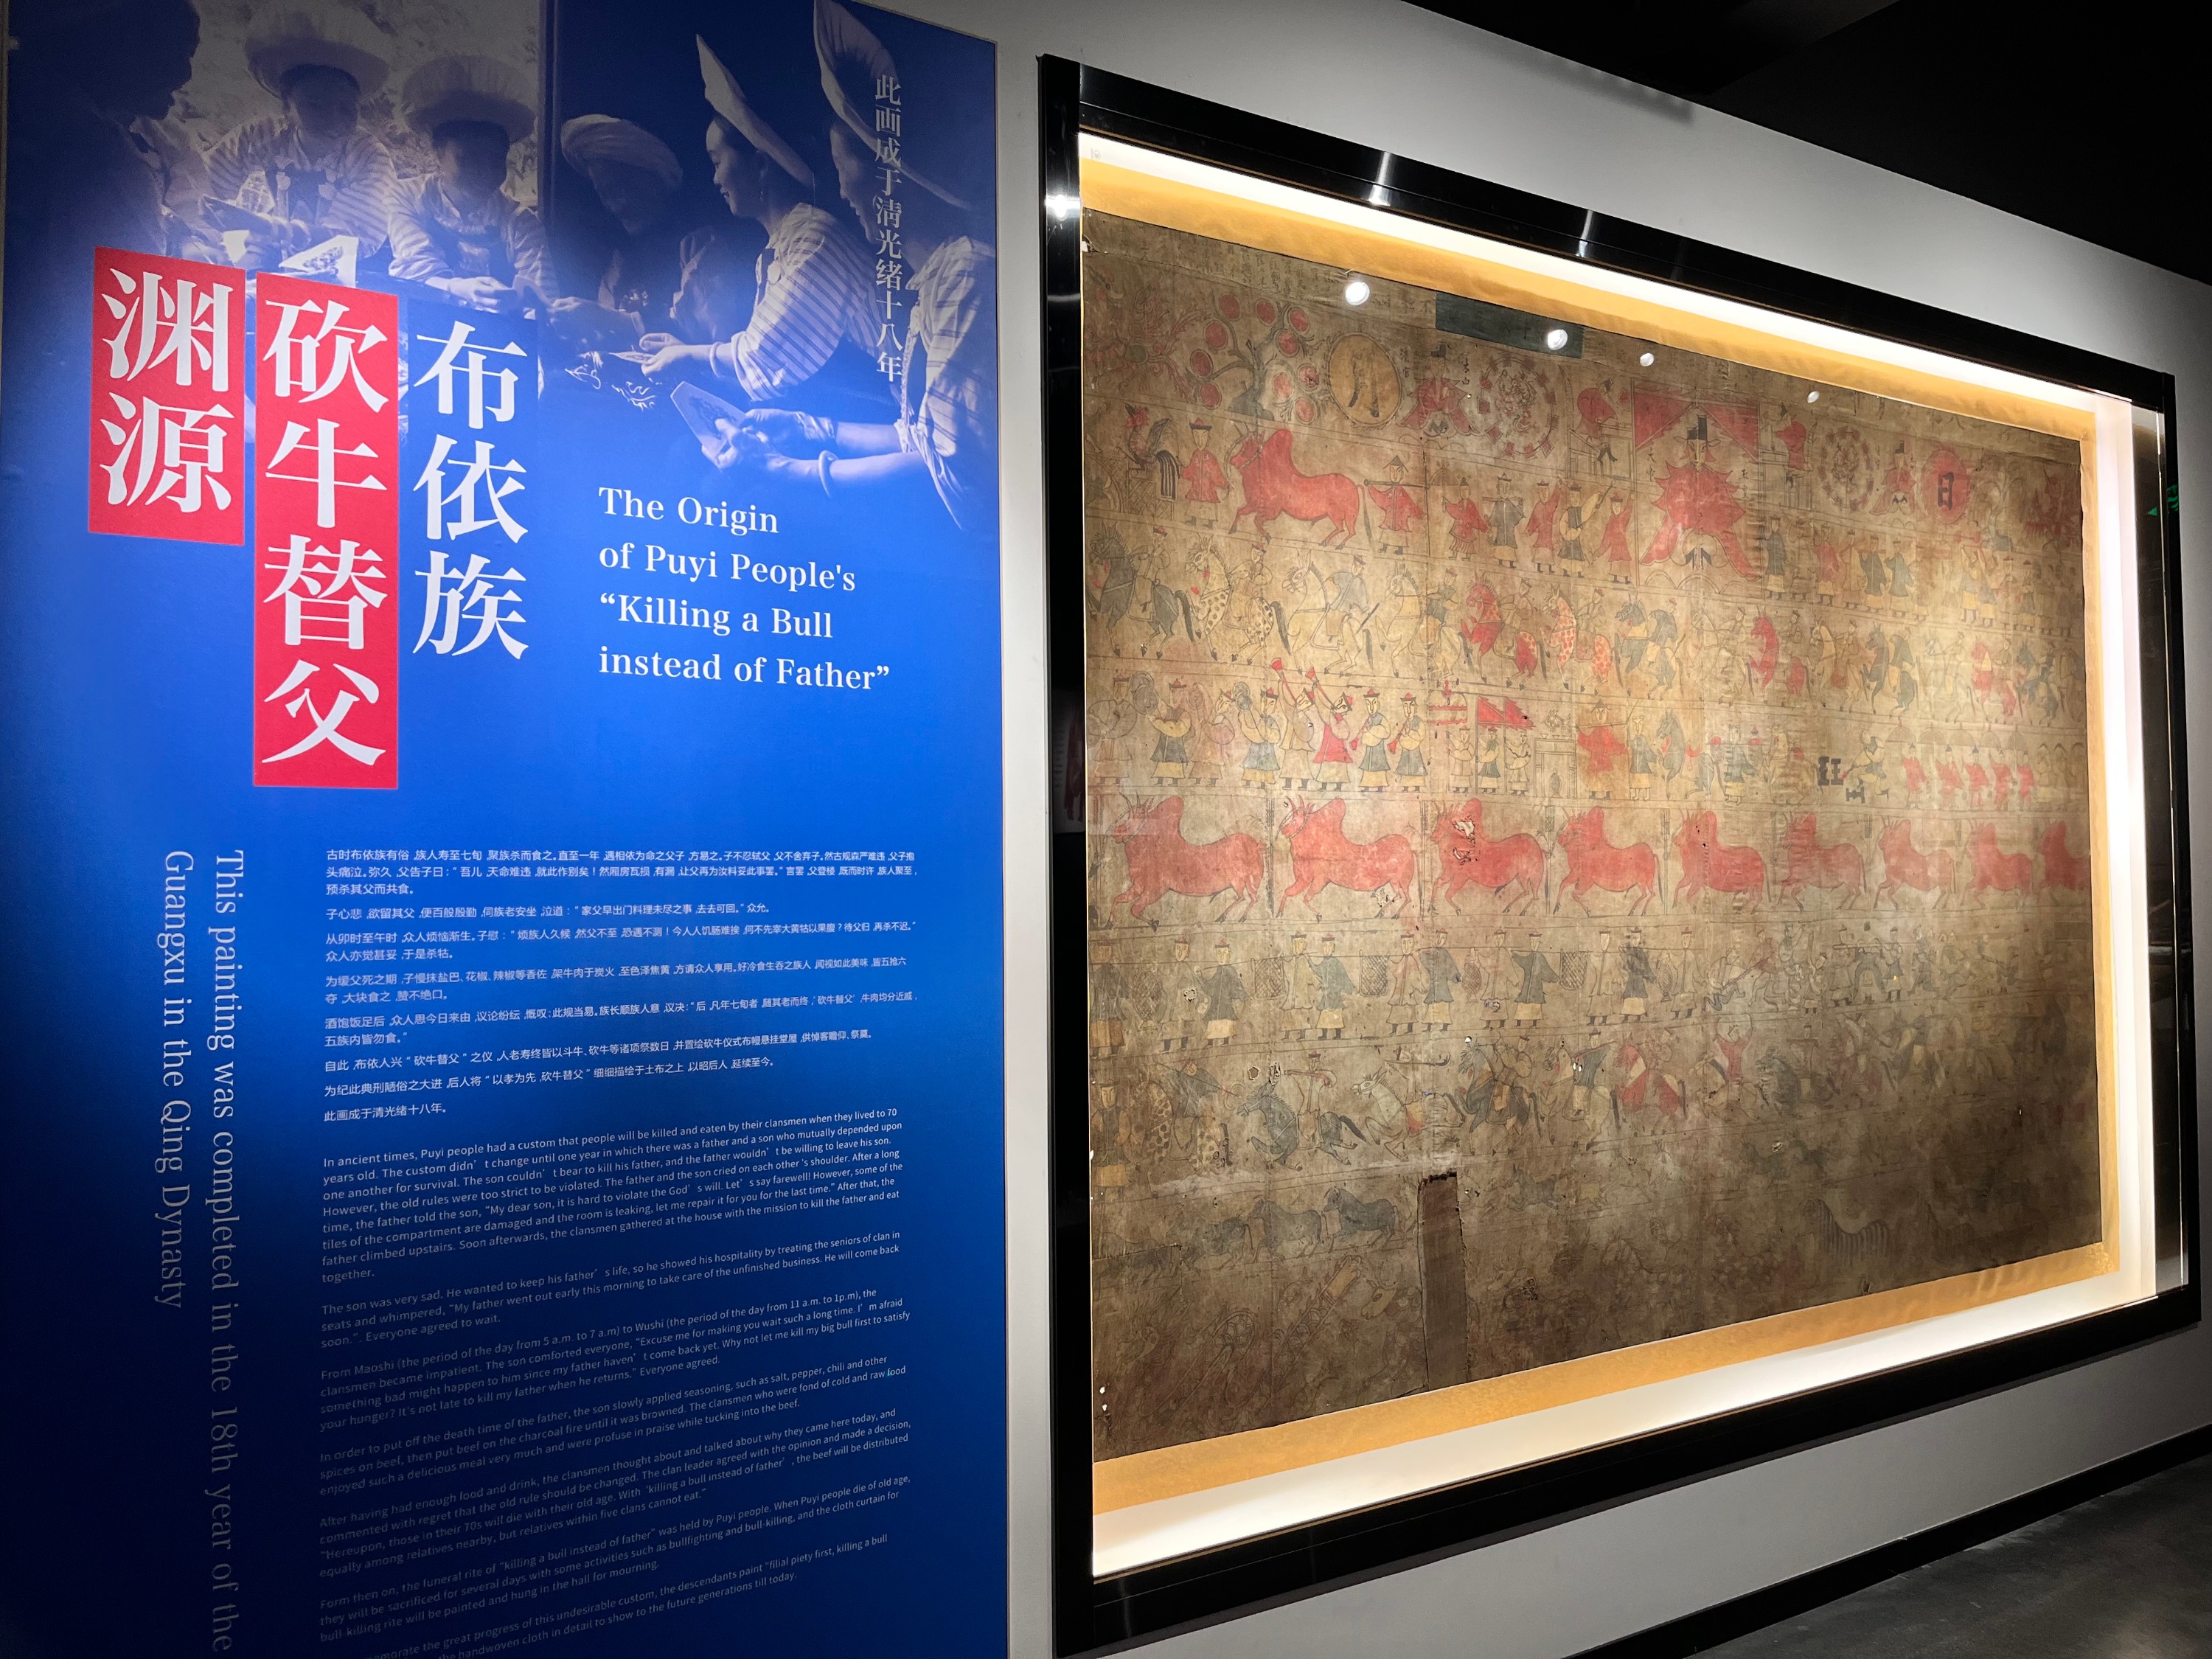 此画成于清光绪十八年
布依族
砍牛替父
渊源
The Origin
of Puyi People's
“Killing a Bull
instead of Father”
This painting was completed in the 18th year of the
Guangxu in the Qing Dynasty
古时布依族有俗,族人寿至七旬,聚族杀而食之。直至一年,遇相依为命之父子,方易之。子不忍弑父,父不舍弃子。然古规森严难违,父子抱
头痛泣。弥久,父告子曰:“吾儿,天命难违,就此作别矣!然厢房瓦损,有漏,让父再为汝料妥此事罢。”言罢,父登楼,既而时许,族人聚至,
预杀其父而共食。
子心悲,欲留其父,便百般殷勤,伺族老安坐,泣道:“家父早出门料理未尽之事,去去可回。”众允。
从卯时至午时,众人烦恼渐生。子慰:“烦族人久候,然父不至,恐遇不测!今人人饥肠难挨,何不先宰大黄牯以果腹?待父归,再杀不迟。”
众人亦觉甚妥,于是杀牯。
为缓父死之期,子慢抹盐巴、花椒、辣椒等香佐,架牛肉于炭火,至色泽焦黄,方请众人享用。好冷食生吞之族人,闻视如此美味,皆五抢六
夺,大块食之,赞不绝口。
酒饱饭足后,众人思今日来由,议论纷纭,慨叹:此规当易。族长顺族人意,议决:“后,凡年七旬者,随其老而终,‘砍牛替父’,牛肉均分近戚,
五族内皆勿食。”
自此,布依人兴“砍牛替父”之仪,人老寿终皆以斗牛、砍牛等诸项祭数日,并置绘砍牛仪式布幔悬挂堂屋,供悼客瞻仰、祭奠。
为纪此典刑陋俗之大进,后人将“以孝为先,砍牛替父”细细描绘于土布之上,以昭后人,延续至今。
此画成于清光绪十八年。
In ancient times, Puyi people had a custom that people will be killed and eaten by their clansmen when they lived to 70
years old. The custom didn’t change until one year in which there was a father and a son who mutually depended upon
one another for survival. The son couldn’t bear to kill his father, and the father wouldn’t be willing to leave his son.
However, the old rules were too strict to be violated. The father and the son cried on each other's shoulder. After a long
time, the father told the son, “My dear son, it is hard to violate the God’s will. Let’s say farewell! However, some of the
tiles of the compartment are damaged and the room is leaking, let me repair it for you for the last time.” After that, the
father climbed upstairs. Soon afterwards, the clansmen gathered at the house with the mission to kill the father and eat
together.
The son was very sad. He wanted to keep his father’s life, so he showed his hospitality by treating the seniors of clan in
seats and whimpered, “My father went out early this morning to take care of the unfinished business. He will come back
soon.”. Everyone agreed to wait.
From Maoshi (the period of the day from 5 a.m. to 7 a.m) to Wushi (the period of the day from 11 a.m. to 1p.m), the
clansmen became impatient. The son comforted everyone, “Excuse me for making you wait such a long time. I’m afraid
something bad might happen to him since my father haven’t come back yet. Why not let me kill my big bull first to satisfy
your hunger? It's not late to kill my father when he returns.” Everyone agreed.
In order to put off the death time of the father, the son slowly applied seasoning, such as salt, pepper, chili and other
spices on beef, then put beef on the charcoal fire until it was browned. The clansmen who were fond of cold and raw food
enjoyed such a delicious meal very much and were profuse in praise while tucking into the beef.
After having had enough food and drink, the clansmen thought about and talked about why they came here today, and
commented with regret that the old rule should be changed. The clan leader agreed with the opinion and made a decision,
“Hereupon, those in their 70s will die with their old age. With ‘killing a bull instead of father’, the beef will be distributed
equally among relatives nearby, but relatives within five clans cannot eat.”
Form then on, the funeral rite of “killing a bull instead of father” was held by Puyi people. When Puyi people die of old age,
they will be sacrificed for several days with some activities such as bullfighting and bull-killing, and the cloth curtain for
bull-killing rite will be painted and hung in the hall for mourning.
the great progress of this undesirable custom, the descendants paint “filial piety first, killing a bull
handwoven cloth in detail to show to the future generations till today.
月
日